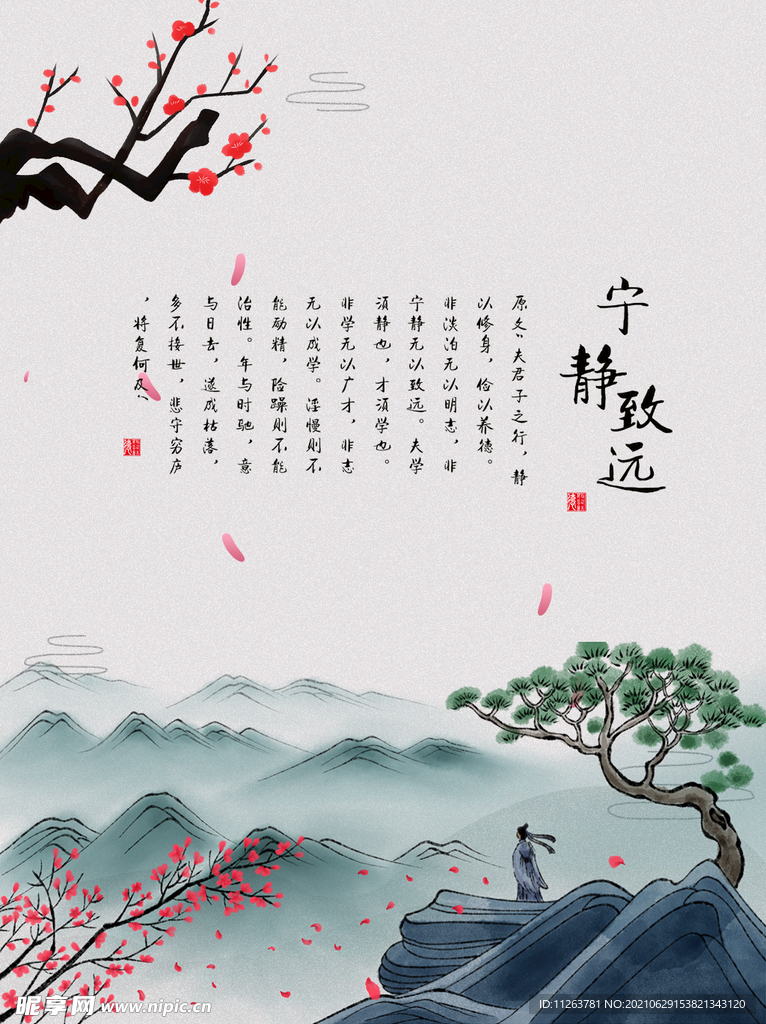 宁静致远
原文：夫君子之行，静
以修身，俭以养德。
非淡泊无以明志，非
宁静无以致远。夫学
须静也，才须学也。
非学无以广才，非志
无以成学。淫慢则不
能励精，险躁则不能
治性。年与时驰，意
与日去，遂成枯落，
多不接世，悲守穷庐
，将复何及！
昵享网 www.nipic.cn
ID:11263781 NO:20210629153821343120